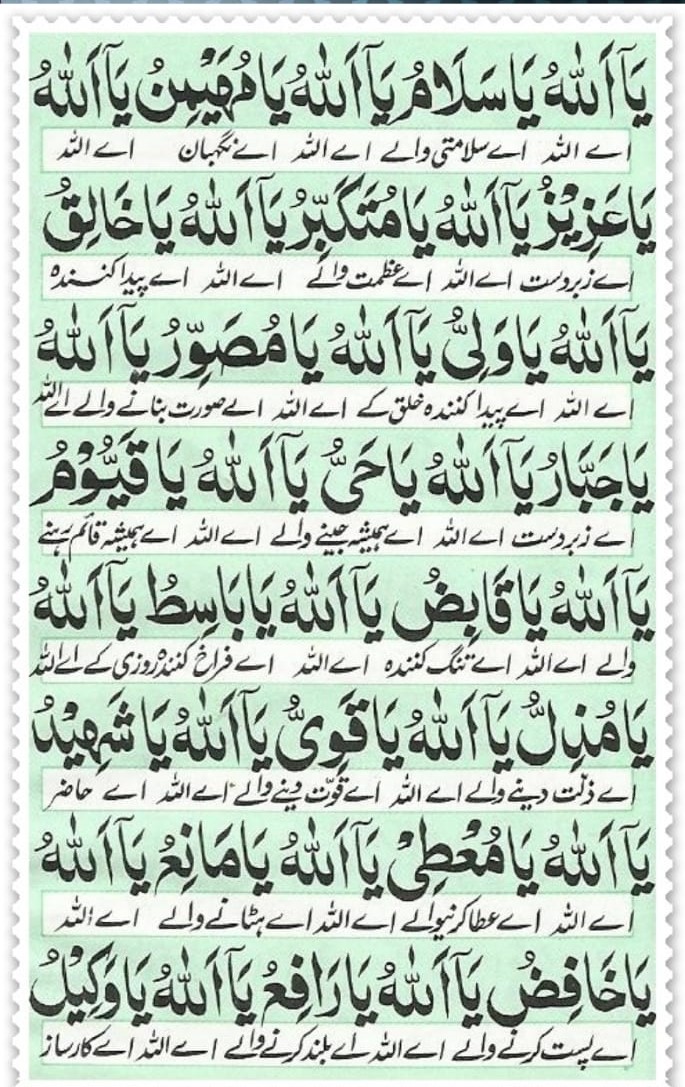 يَآ اَللّٰهُ يَا سَلَامُ يَآ اَللّٰهُ يَا مُهَيْمِنُ يَآ اَللّٰهُ
اے اللہ اے سلامتی والے اے اللہ اے نگہبان اے اللہ
يَا عَزِيْزُ يَآ اَللّٰهُ يَا مُتَكَبِّرُ يَآ اَللّٰهُ يَا خَالِقُ
اے زبردست اے اللہ اے عظمت والے اے اللہ اے پیدا کنندہ
يَآ اَللّٰهُ يَا وَلِيُّ يَآ اَللّٰهُ يَا مُصَوِّرُ يَآ اَللّٰهُ
اے اللہ اے پیدا کنندہ خلق کے اے اللہ اے صورت بنانے والے اے اللہ
يَا جَبَّارُ يَآ اَللّٰهُ يَا حَيُّ يَآ اَللّٰهُ يَا قَيُّوْمُ
اے زبردست اے اللہ اے ہمیشہ جینے والے اے اللہ اے ہمیشہ قائم رہنے
يَآ اَللّٰهُ يَا قَابِضُ يَآ اَللّٰهُ يَا بَاسِطُ يَآ اَللّٰهُ
والے اے اللہ اے تنگ کنندہ اے اللہ اے فراخ کنندہ روزی کے اے اللہ
يَا مُذِلُّ يَآ اَللّٰهُ يَا قَوِيُّ يَآ اَللّٰهُ يَا شَهِيْدُ
اے ذلت دینے والے اے اللہ اے قوّت دینے والے اے اللہ اے حاضر
يَآ اَللّٰهُ يَا مُعْطِيْ يَآ اَللّٰهُ يَا مَانِعُ يَآ اَللّٰهُ
اے اللہ اے عطا کرنیوالے اے اللہ اے ہٹانے والے اے اللہ
يَا خَافِضُ يَآ اَللّٰهُ يَا رَافِعُ يَآ اَللّٰهُ يَا وَكِيْلُ
اے پست کرنے والے اے اللہ اے بلند کرنے والے اے اللہ اے کارساز